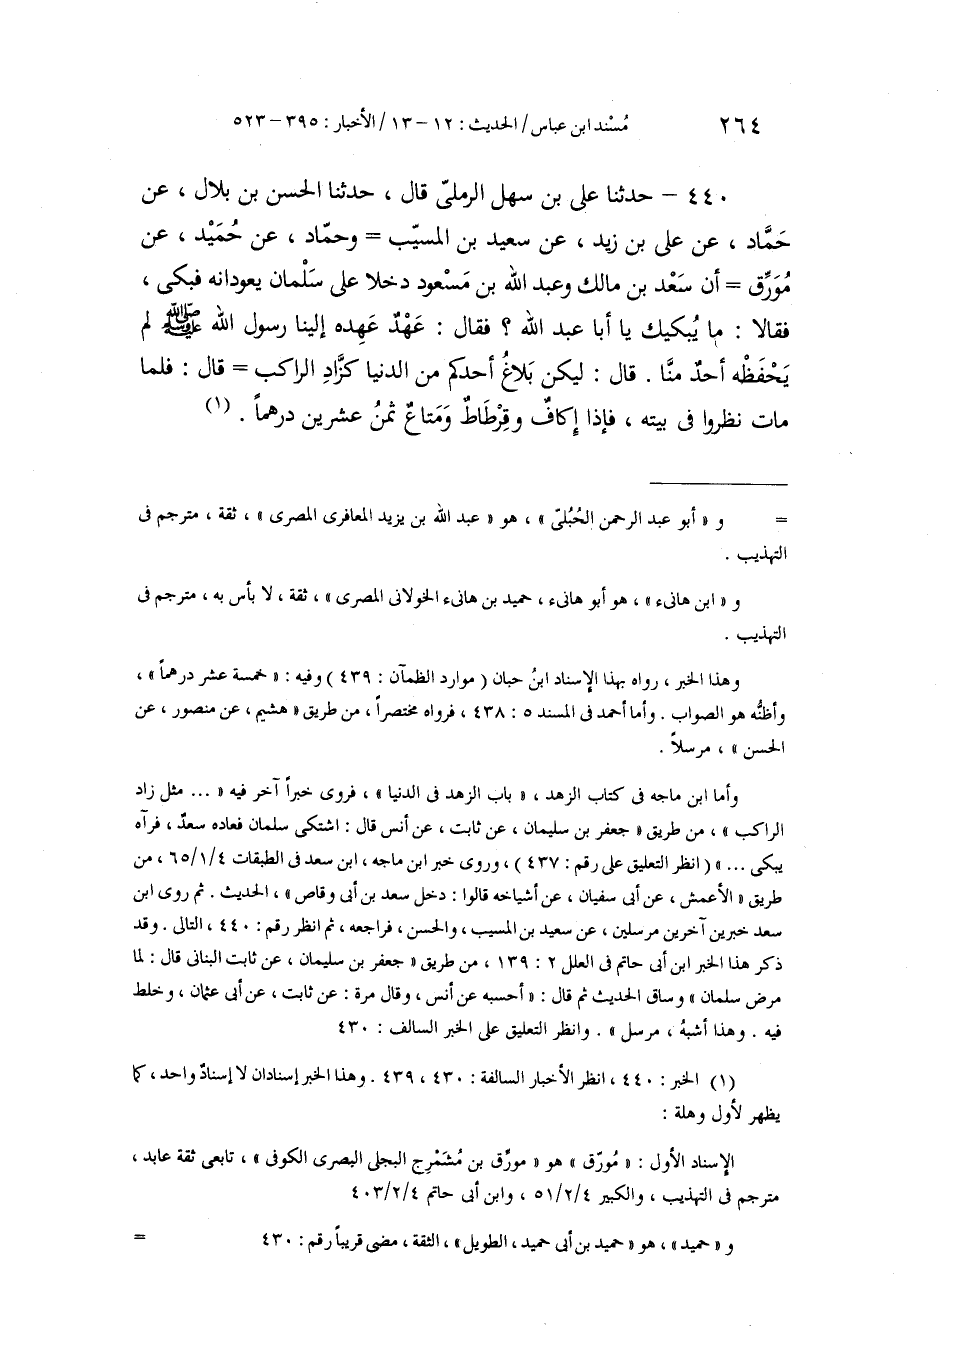 ٢٦٤ مُسْند ابن عباس / الحديث : ١٢ – ١٣ / الأخبار : ٣٩٥ – ٥٢٣
٤٤٠ – حدثنا على بن سهل الرملىّ قال ، حدثنا الحسن بن بلال ، عن
حَمَّاد ، عن على بن زيد ، عن سعيد بن المسيّب = وحمّاد ، عن حُمَيْد ، عن
مُوَرِّق = أن سَعْد بن مالك وعبد الله بن مَسْعود دخلا على سَلْمان يعودانه فبكى ،
فقالا : ما يُبكيك يا أبا عبد الله ؟ فقال : عَهْدٌ عَهِده إلينا رسول الله ﷺ لم
يَحْفَظْه أحدٌ منَّا . قال : ليكن بَلاغُ أحدكم من الدنيا كزَّادِ الراكب = قال : فلما
مات نظروا فى بيته ، فإذا إكافٌ وقِرْطَاطٌ وَمَتاعٌ ثمنُ عشرين درهماً . (١)
= و « أبو عبد الرحمن الحُبُلىّ » ، هو « عبد الله بن يزيد المعافرى المصرى » ، ثقة ، مترجم فى
التهذيب .
و « ابن هانىء » ، هو أبو هانىء ، حميد بن هانىء الخولانى المصرى » ، ثقة ، لا بأس به ، مترجم فى
التهذيب .
وهذا الخبر ، رواه بهذا الإسناد ابنُ حبان ( موارد الظمآن : ٤٣٩ ) وفيه : « خمسة عشر درهماً » ،
وأظنُّه هو الصواب . وأما أحمد فى المسند ٥ : ٤٣٨ ، فرواه مختصراً ، من طريق « هشيم ، عن منصور ، عن
الحسن » ، مرسلاً .
وأما ابن ماجه فى كتاب الزهد ، « باب الزهد فى الدنيا » ، فروى خبراً آخر فيه « ... مثل زاد
الراكب » ، من طريق « جعفر بن سليمان ، عن ثابت ، عن أنس قال : اشتكى سلمان فعاده سعدٌ ، فرآه
يبكى ... » ( انظر التعليق على رقم : ٤٣٧ ) ، وروى خبر ابن ماجه ، ابن سعد فى الطبقات ٦٥/١/٤ ، من
طريق « الأعمش ، عن أبى سفيان ، عن أشياخه قالوا : دخل سعد بن أبى وقاص » ، الحديث . ثم روى ابن
سعد خبرين آخرين مرسلين ، عن سعيد بن المسيب ، والحسن ، فراجعه ، ثم انظر رقم : ٤٤٠ ، التالى . وقد
ذكر هذا الخبر ابن أبى حاتم فى العلل ٢ : ١٣٩ ، من طريق « جعفر بن سليمان ، عن ثابت البنانى قال : لما
مرض سلمان » وساق الحديث ثم قال : « أحسبه عن أنس ، وقال مرة : عن ثابت ، عن أبى عثمان ، وخلط
فيه . وهذا أشبهُ ، مرسل » . وانظر التعليق على الخبر السالف : ٤٣٠
(١) الخبر : ٤٤٠ ، انظر الأخبار السالفة : ٤٣٠ ، ٤٣٩ . وهذا الخبر إسنادان لا إسنادٌ واحد ، كما
يظهر لأول وهلة :
الإسناد الأول : « مُورّق » هو « مورِّق بن مُشَمْرِج البجلى البصرى الكوفى » ، تابعى ثقة عابد ،
مترجم فى التهذيب ، والكبير ٥١/٢/٤ ، وابن أبى حاتم ٤٠٣/٢/٤
و « حميد » ، هو « حميد بن أبى حميد ، الطويل » ، الثقة ، مضى قريباً رقم : ٤٣٠ =